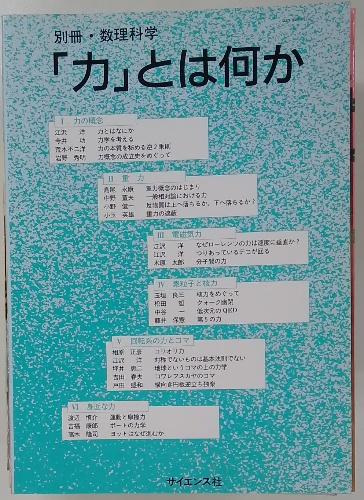 別冊・数理科学
「力」とは何か
I 力の概念
江沢 洋 力とはなにか
今井 功 力学を考える
荒木不二洋 力の本質を秘める逆2乗則
岩野 秀明 力概念の成立史をめぐって
II 重力
永康 重力概念のはじまり
中野 董夫 一般相対論における力
小野 健一 反物質は上へ落ちるか、下へ落ちるか?
小玉 英雄 重力の遮蔽
III 電磁気力
江沢 洋 なぜローレンツの力は速度に垂直か?
江沢 洋 つりあっているテコが回る
太郎 分子間の力
IV 素粒子と核力
玉垣 良三 核力をめぐって
松田 哲 クォーク幽閉
中谷 一 低次元のQED
藤井 保憲 第5の力
V 回転系の力とコマ
相原 正彦 コリオリ力
江沢 洋 対称でないものは基本法則でない
坪井 忠二 地球というコマの上の力学
吉田 春夫 コワレフスカヤのコマ
戸田 盛和 横向き円板逆立ち独楽
VI 身近な力
渡辺 慎介 運動と摩擦力
吉福 康郎 ボートの力学
高木 隆司 ヨットはなぜ進むか
サイエンス社